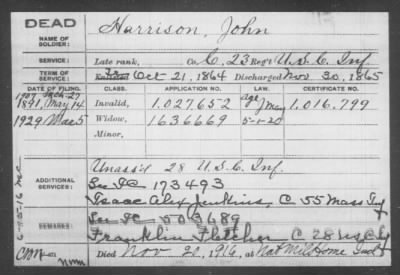 DEAD
NAME OF SOLDIER: Harrison, John
SERVICE: Late rank, Co. C, 23 Reg't U.S.C. Inf.
TERM OF SERVICE: Enlisted Oct 21, 1864 Discharged Nov 30, 1865
DATE OF FILING. CLASS. APPLICATION NO. LAW. CERTIFICATE NO.
1907
1891, May 14. Invalid, 1,027,652 age May 1,016,799
1929 Mar 5 Widow, 1636669 5-1-20
Minor,
ADDITIONAL SERVICES: Unass'd 28 U.S.C. Inf.
173493
Isaac Alex Jenkins, C 55 Mass Inf
Franklin Fletcher C 28
Died Nov 20, 1916, at Nat Mil Home